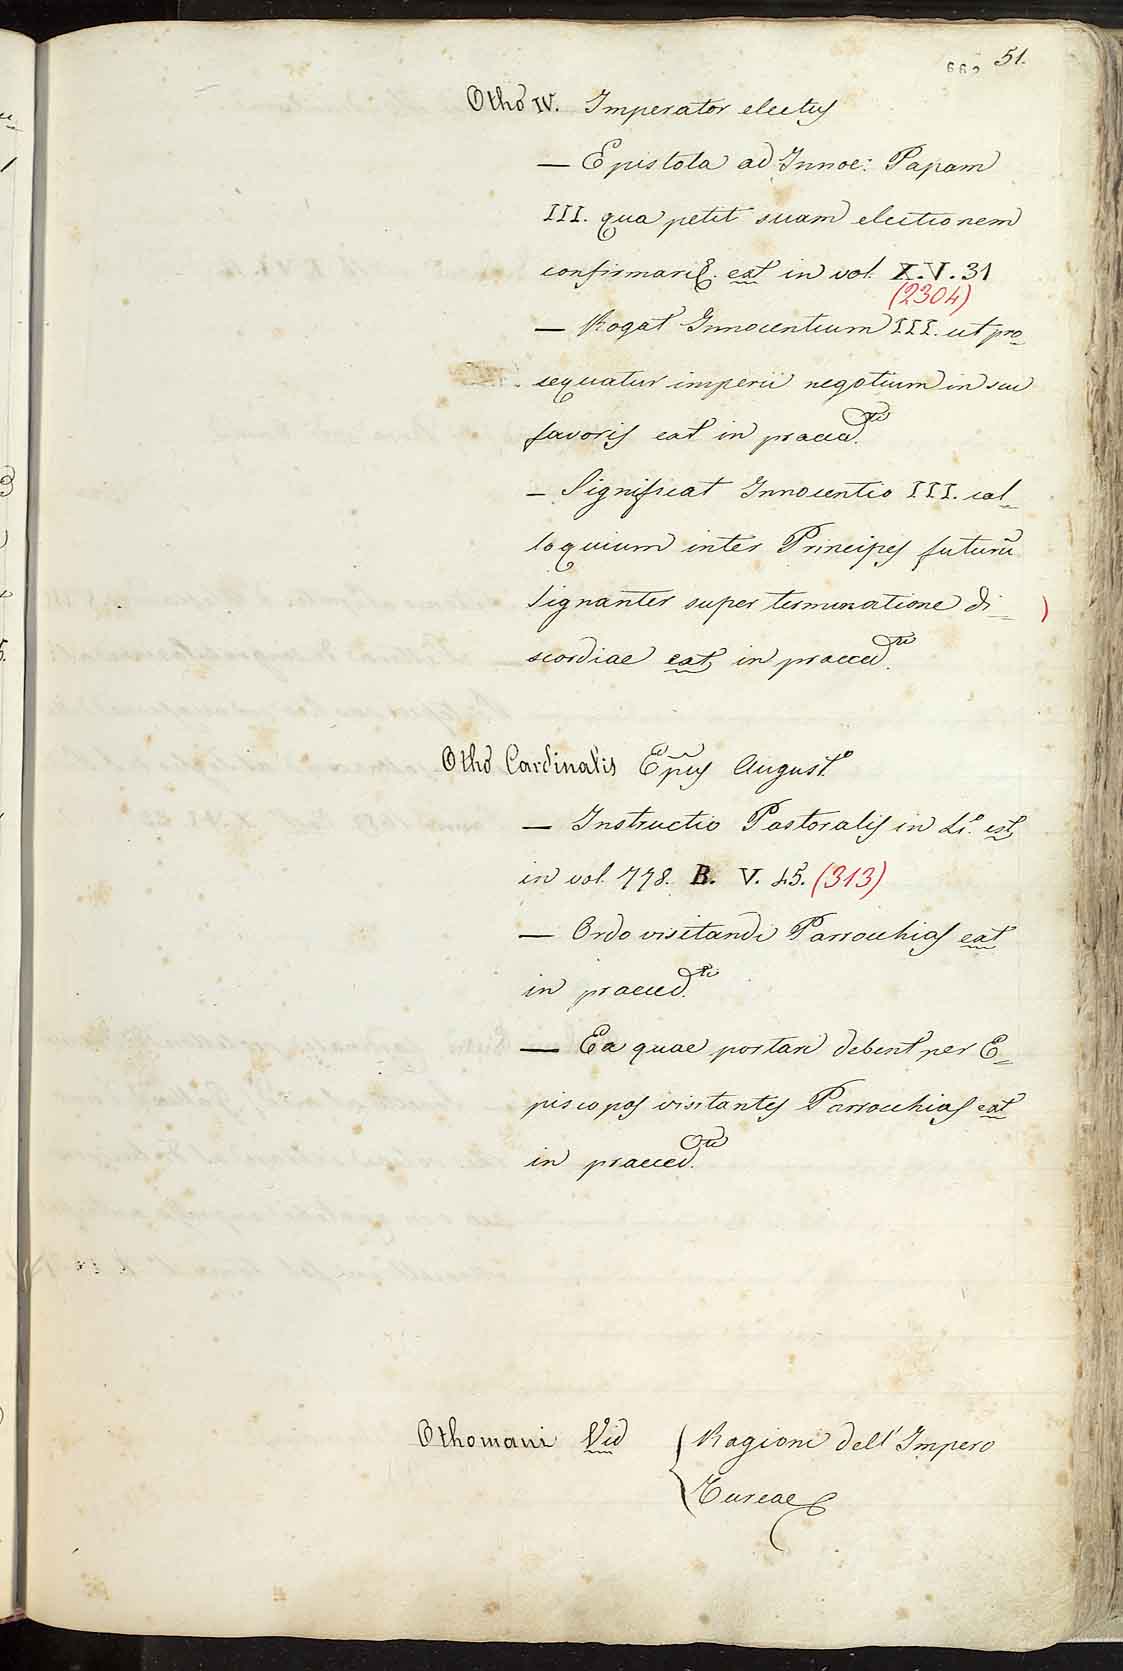 662 51.
Otho IV. Imperator electus
— Epistola ad Innoc: Papam
III. qua petit suam electionem
confirmari &. ext in vol. X.V.31
(2304)
— Rogat Innocentium III. ut pro=
sequatur imperii negotium in sui
favoris ext in praeced.ti
— Significat Innocentio III. col=
loquium inter Principes futurũ
signanter super terminatione di=
scordiae ext in praeced.ti
Otho Cardinalis Epũs August.
— Instructio Pastoralis in 4.o ext
in vol. 778. B. V. 45. (313)
— Ordo visitandi Parrochias ext
in praeced.ti
— Ea quae portari debent per E=
piscopos visitantes Parrochias ext
in praeced.ti
Othomani Vid { Ragioni dell' Impero
Turcae